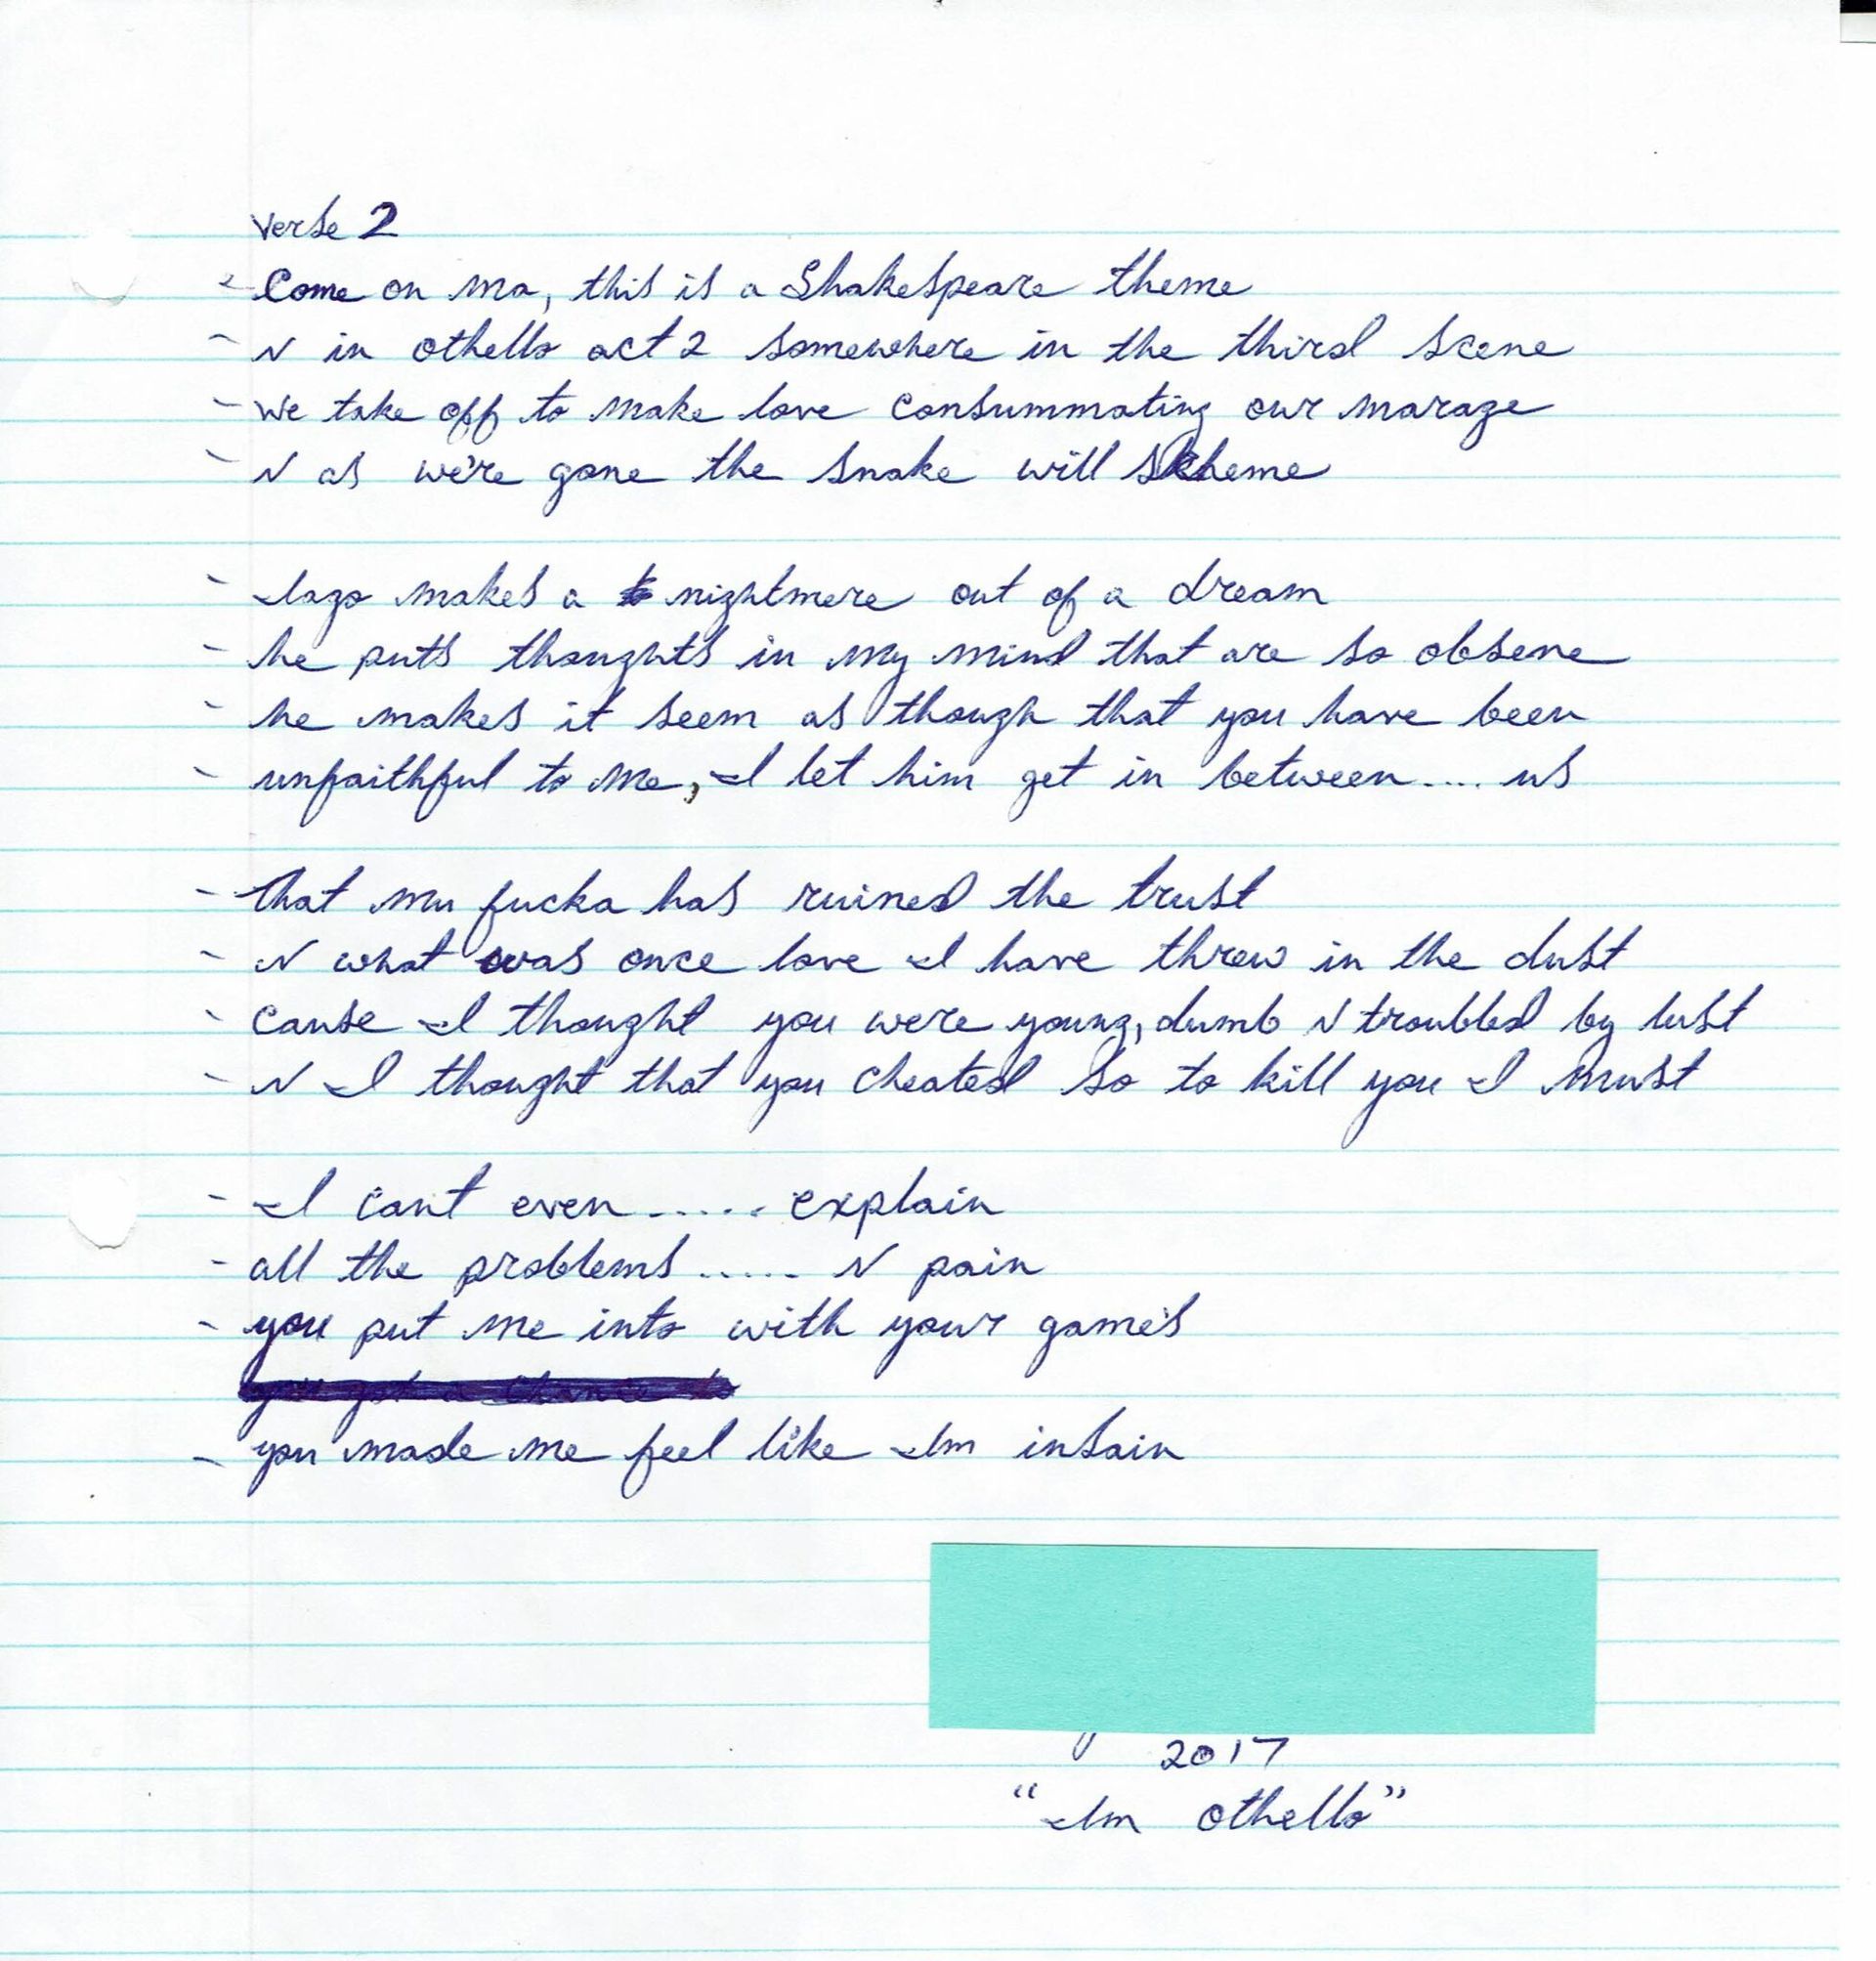 Verse 2
- Come on ma, this is a Shakespeare theme
- N in othello act 2 somewhere in the third scene
- We take off to make love consummating our marage
- N as we're gone the snake will scheme
- Iago makes a nightmere out of a dream
- he puts thoughts in my mind that are so obsene
- he makes it seem as though that you have been
- unfaithful to me, I let him get in between.... us
- That mu fucka has ruined the trust
- N what was once love I have threw in the dust
- cause I thought you were young, dumb N troubled by lust
- N I thought that you cheated so to kill you I must
- I can't even ..... explain
- all the problems ..... N pain
- you put me into with your game's
- you made me feel like Im insain
2017
"Im Othello"